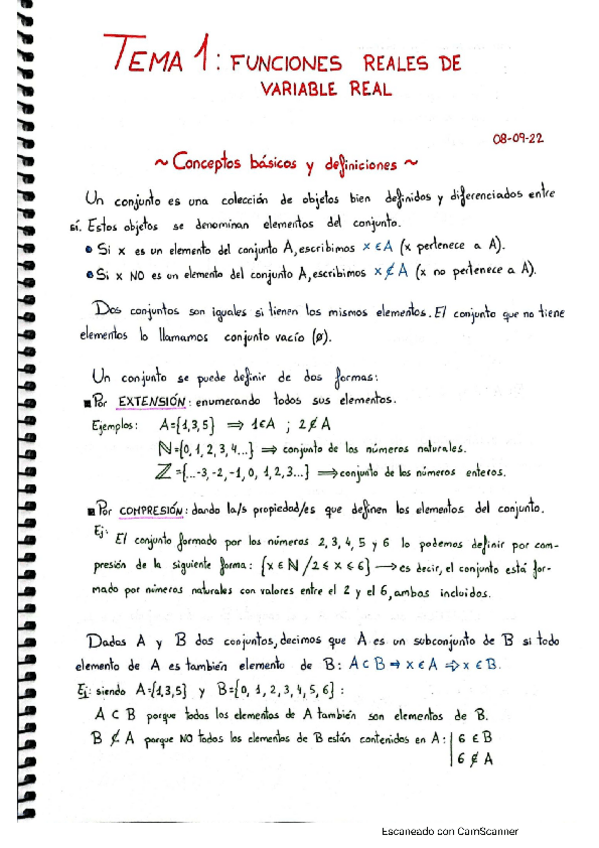 TEMA 1: FUNCIONES REALES DE
VARIABLE REAL
08-09-22
~ Conceptos básicos y definiciones ~
Un conjunto es una colección de objetos bien definidos y diferenciados entre
sí. Estos objetos se denominan elementos del conjunto.
• Si x es un elemento del conjunto A, escribimos x ∈ A (x pertenece a A).
• Si x NO es un elemento del conjunto A, escribimos x ∉ A (x no pertenece a A).
Dos conjuntos son iguales si tienen los mismos elementos. El conjunto que no tiene
elementos lo llamamos conjunto vacío (ø).
Un conjunto se puede definir de dos formas:
■ Por EXTENSIÓN: enumerando todos sus elementos.
Ejemplos: A={1,3,5} ⇒ 1∈A ; 2∉A
ℕ={0, 1, 2, 3, 4...} ⇒ conjunto de los números naturales.
ℤ={...-3, -2, -1, 0, 1, 2, 3...} ⇒ conjunto de los números enteros.
■ Por COMPRESIÓN: dando la/s propiedad/es que definen los elementos del conjunto.
Ej: El conjunto formado por los números 2, 3, 4, 5 y 6 lo podemos definir por com-
presión de la siguiente forma: {x ∈ ℕ / 2 ≤ x ≤ 6} → es decir, el conjunto está for-
mado por números naturales con valores entre el 2 y el 6, ambos incluidos.
Dados A y B dos conjuntos, decimos que A es un subconjunto de B si todo
elemento de A es también elemento de B: A ⊂ B ⇒ x ∈ A ⇒ x ∈ B.
Ej: siendo A={1,3,5} y B={0, 1, 2, 3, 4, 5, 6} :
A ⊂ B porque todos los elementos de A también son elementos de B.
B ⊄ A porque NO todos los elementos de B están contenidos en A: | 6 ∈ B
| 6 ∉ A
Escaneado con CamScanner